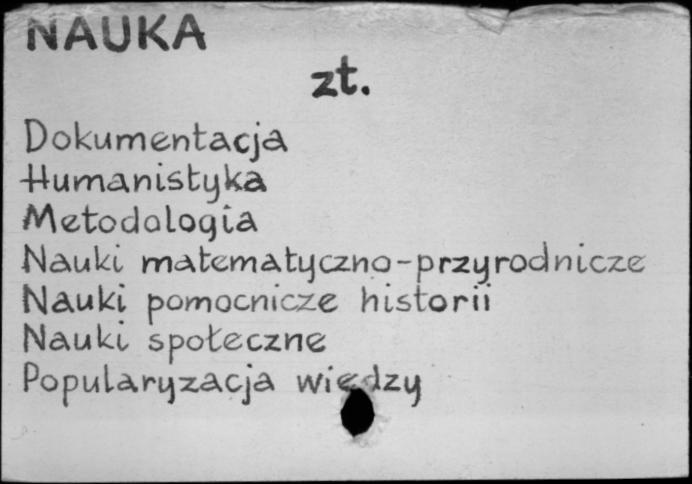 NAUKA
zt.
Dokumentacja
Humanistyka
Metodologia
Nauki matematyczno-przyrodnicze
Nauki pomocnicze historii
Nauki społeczne
Popularyzacja wiedzy